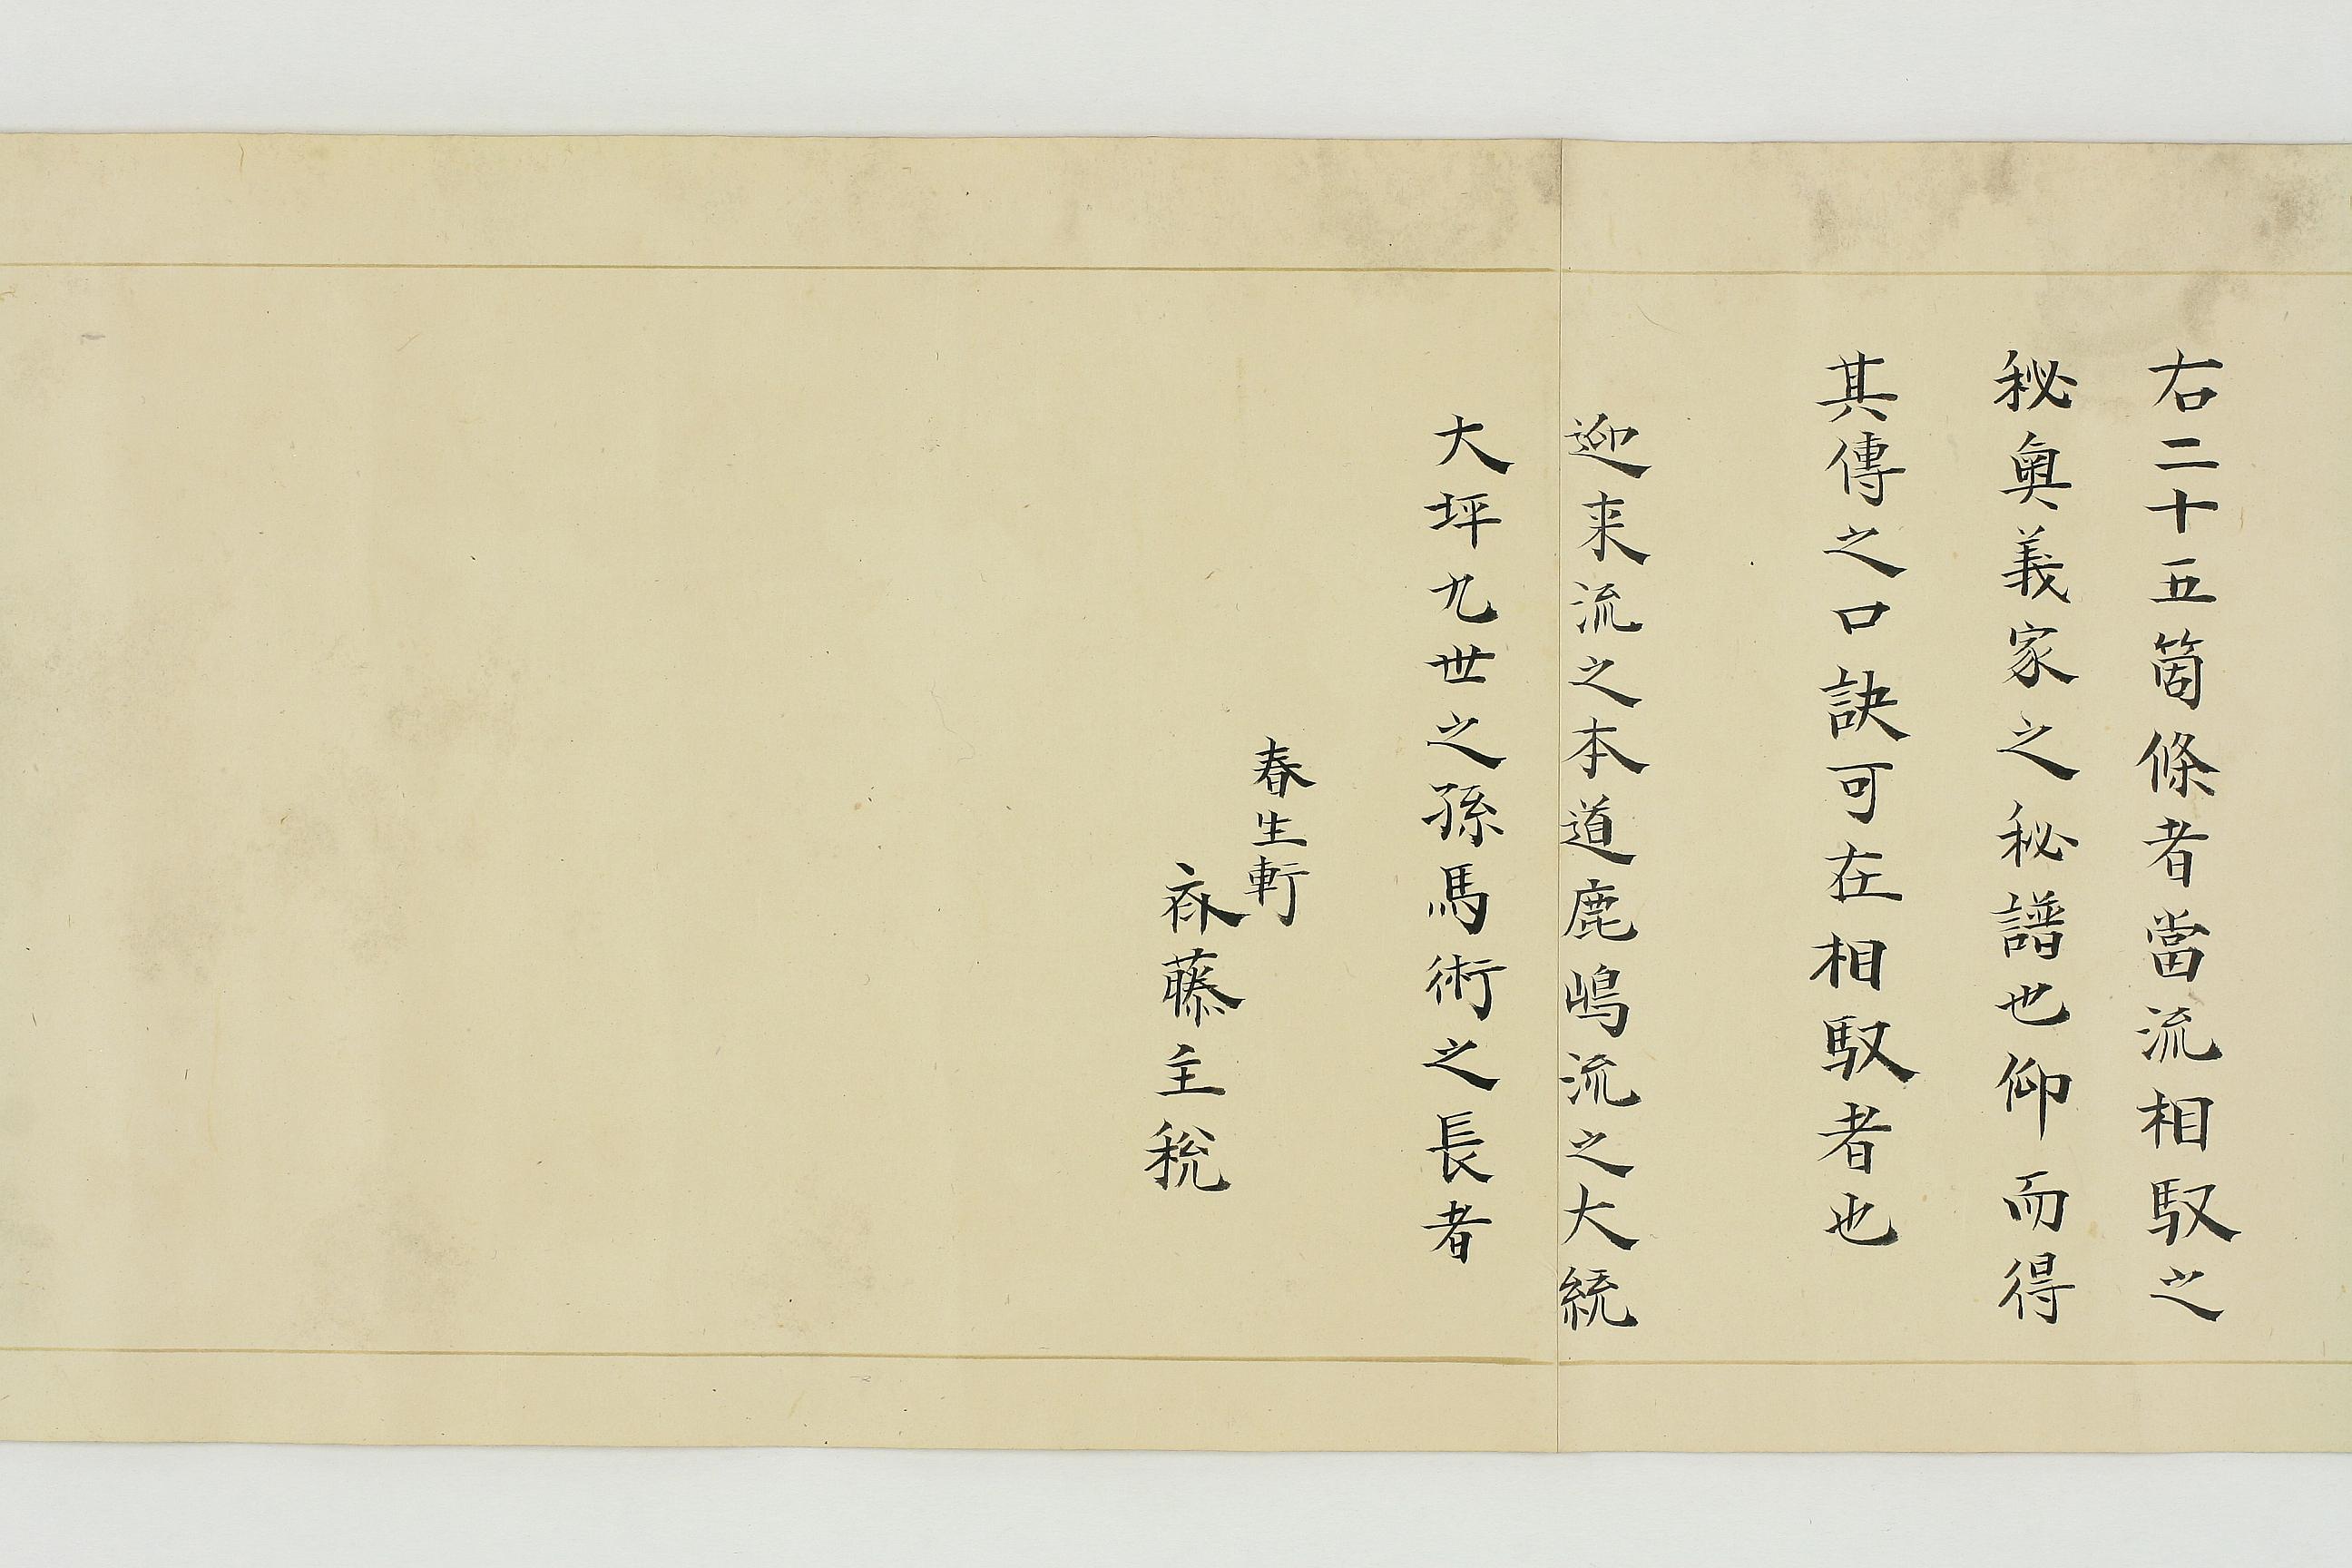 右二十五箇條者當流相馭之
秘奥義家之秘譜也仰而得
其傳之口訣可在相馭者也
迎来流之本道鹿嶋流之大統
大坪九世之孫馬術之長者
春生軒
斎藤主税